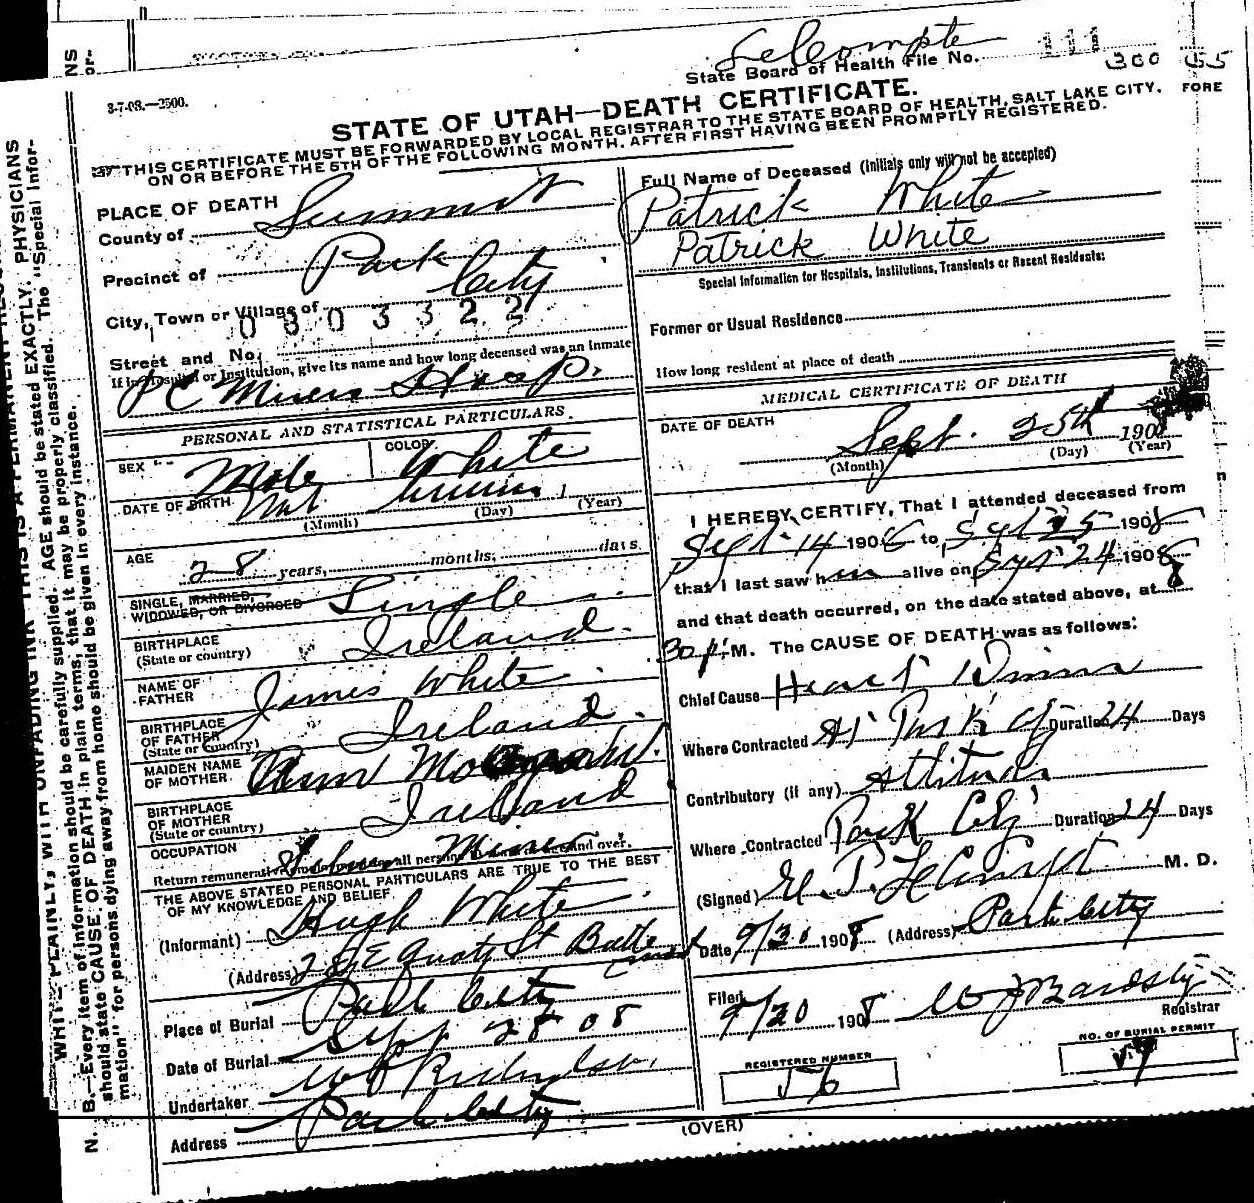 LeCompte
State Board of Health File No. 111
300 55
3-7-08.—2500.
STATE OF UTAH—DEATH CERTIFICATE.
FORE
THIS CERTIFICATE MUST BE FORWARDED BY LOCAL REGISTRAR TO THE STATE BOARD OF HEALTH, SALT LAKE CITY,
ON OR BEFORE THE 5TH OF THE FOLLOWING MONTH, AFTER FIRST HAVING BEEN PROMPTLY REGISTERED.
PLACE OF DEATH
County of Summit
Precinct of Park City
City, Town or Village of
0303322
Street and No.
If in Hospital or Institution, give its name and how long deceased was an inmate
PC Miners Hosp.
PERSONAL AND STATISTICAL PARTICULARS.
SEX Male COLOR White
DATE OF BIRTH Not
(Month) (Day) (Year)
AGE 28 years, months, days
SINGLE, MARRIED,
WIDOWED, OR DIVORCED Single
BIRTHPLACE
(State or country) Ireland.
NAME OF
FATHER James White
BIRTHPLACE
OF FATHER
(State or country) Ireland.
MAIDEN NAME
OF MOTHER
BIRTHPLACE
OF MOTHER
(State or country) Ireland
OCCUPATION Miner
Return remunerative all persons and over.
THE ABOVE STATED PERSONAL PARTICULARS ARE TRUE TO THE BEST
OF MY KNOWLEDGE AND BELIEF
(Informant) Hugh White
(Address) St Butte
Place of Burial Park City
Date of Burial Sept 28 08
Undertaker
Address Park City
Full Name of Deceased (initials only will not be accepted)
Patrick White
Patrick White
Special Information for Hospitals, Institutions, Transients or Recent Residents:
Former or Usual Residence
How long resident at place of death
MEDICAL CERTIFICATE OF DEATH
DATE OF DEATH Sept. 25th 1908
(Month) (Day) (Year)
I HEREBY CERTIFY, That I attended deceased from
Sept 14 1908 to Sept 25 1908
that I last saw him alive on Sept 24 1908
and that death occurred, on the date stated above, at 8
30 p. M. The CAUSE OF DEATH was as follows:
Chief Cause Heart
Where Contracted At Park City Duration 24 Days
Contributory (if any) Altitude
Where Contracted Park City Duration 24 Days
(Signed) LeCompte M. D.
Date 9/30 1908 (Address) Park City
Filed 9/30 1908 W J Bardsley
Registrar
REGISTERED NUMBER
56
NO. OF BURIAL PERMIT
(OVER)
WRITE PLAINLY, WITH UNFADING INK—THIS IS A PERMANENT
N. B.—Every item of information should be carefully supplied. AGE should be stated EXACTLY. PHYSICIANS
should state CAUSE OF DEATH in plain terms, that it may be properly classified. The "Special Infor-
mation" for persons dying away from home should be given in every instance.